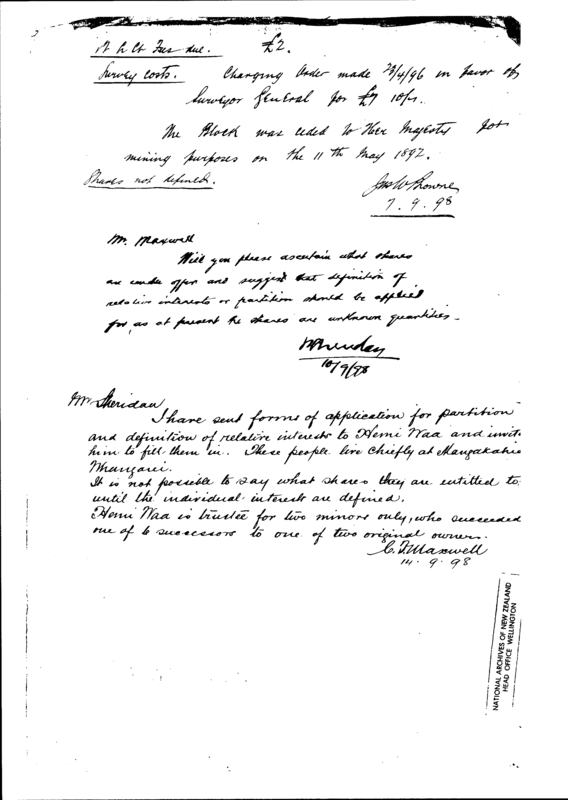 N. L. Ct Fees due. £2.
Survey costs. Charging Order made 28/4/96 in favor of
Surveyor General for £7 10/-.
The Block was ceded to Her Majesty for
mining purposes on the 11th May 1892.
Shares not defined.
Jas W Browne
7. 9. 98
Mr. Maxwell
Will you please ascertain what shares
are under offer and suggest that definition of
relative interests or partition should be applied
for, as at present the shares are unknown quantities -
10/9/98
Mr Sheridan
I have sent forms of application for partition
and definition of relative interests to Hemi Waa and invite
him to fill them in. These people live chiefly at Mangakahia
Whangarei.
It is not possible to say what shares they are entitled to
until the individual interests are defined.
Hemi Waa is trustee for two minors only, who succeeded
one of 6 successors to one of two original owners.
C. T. Maxwell
14. 9. 98
NATIONAL ARCHIVES OF NEW ZEALAND
HEAD OFFICE WELLINGTON